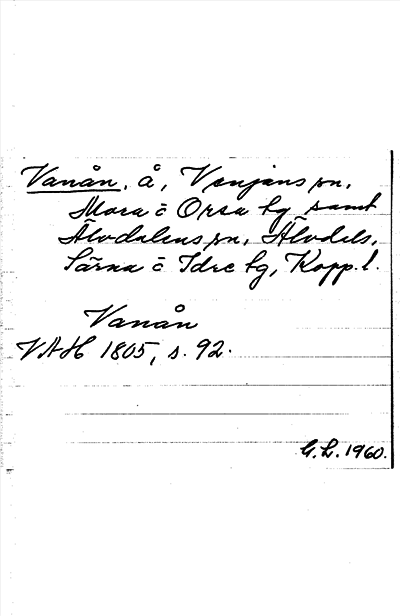 Vanån, å, Venjans sn,
Mora o Orsa tg samt
Älvdalens sn, Älvdals,
Särna o Idre tg, Kopp.l.
Vanån
VAH 1805, s. 92.
G.L. 1960.